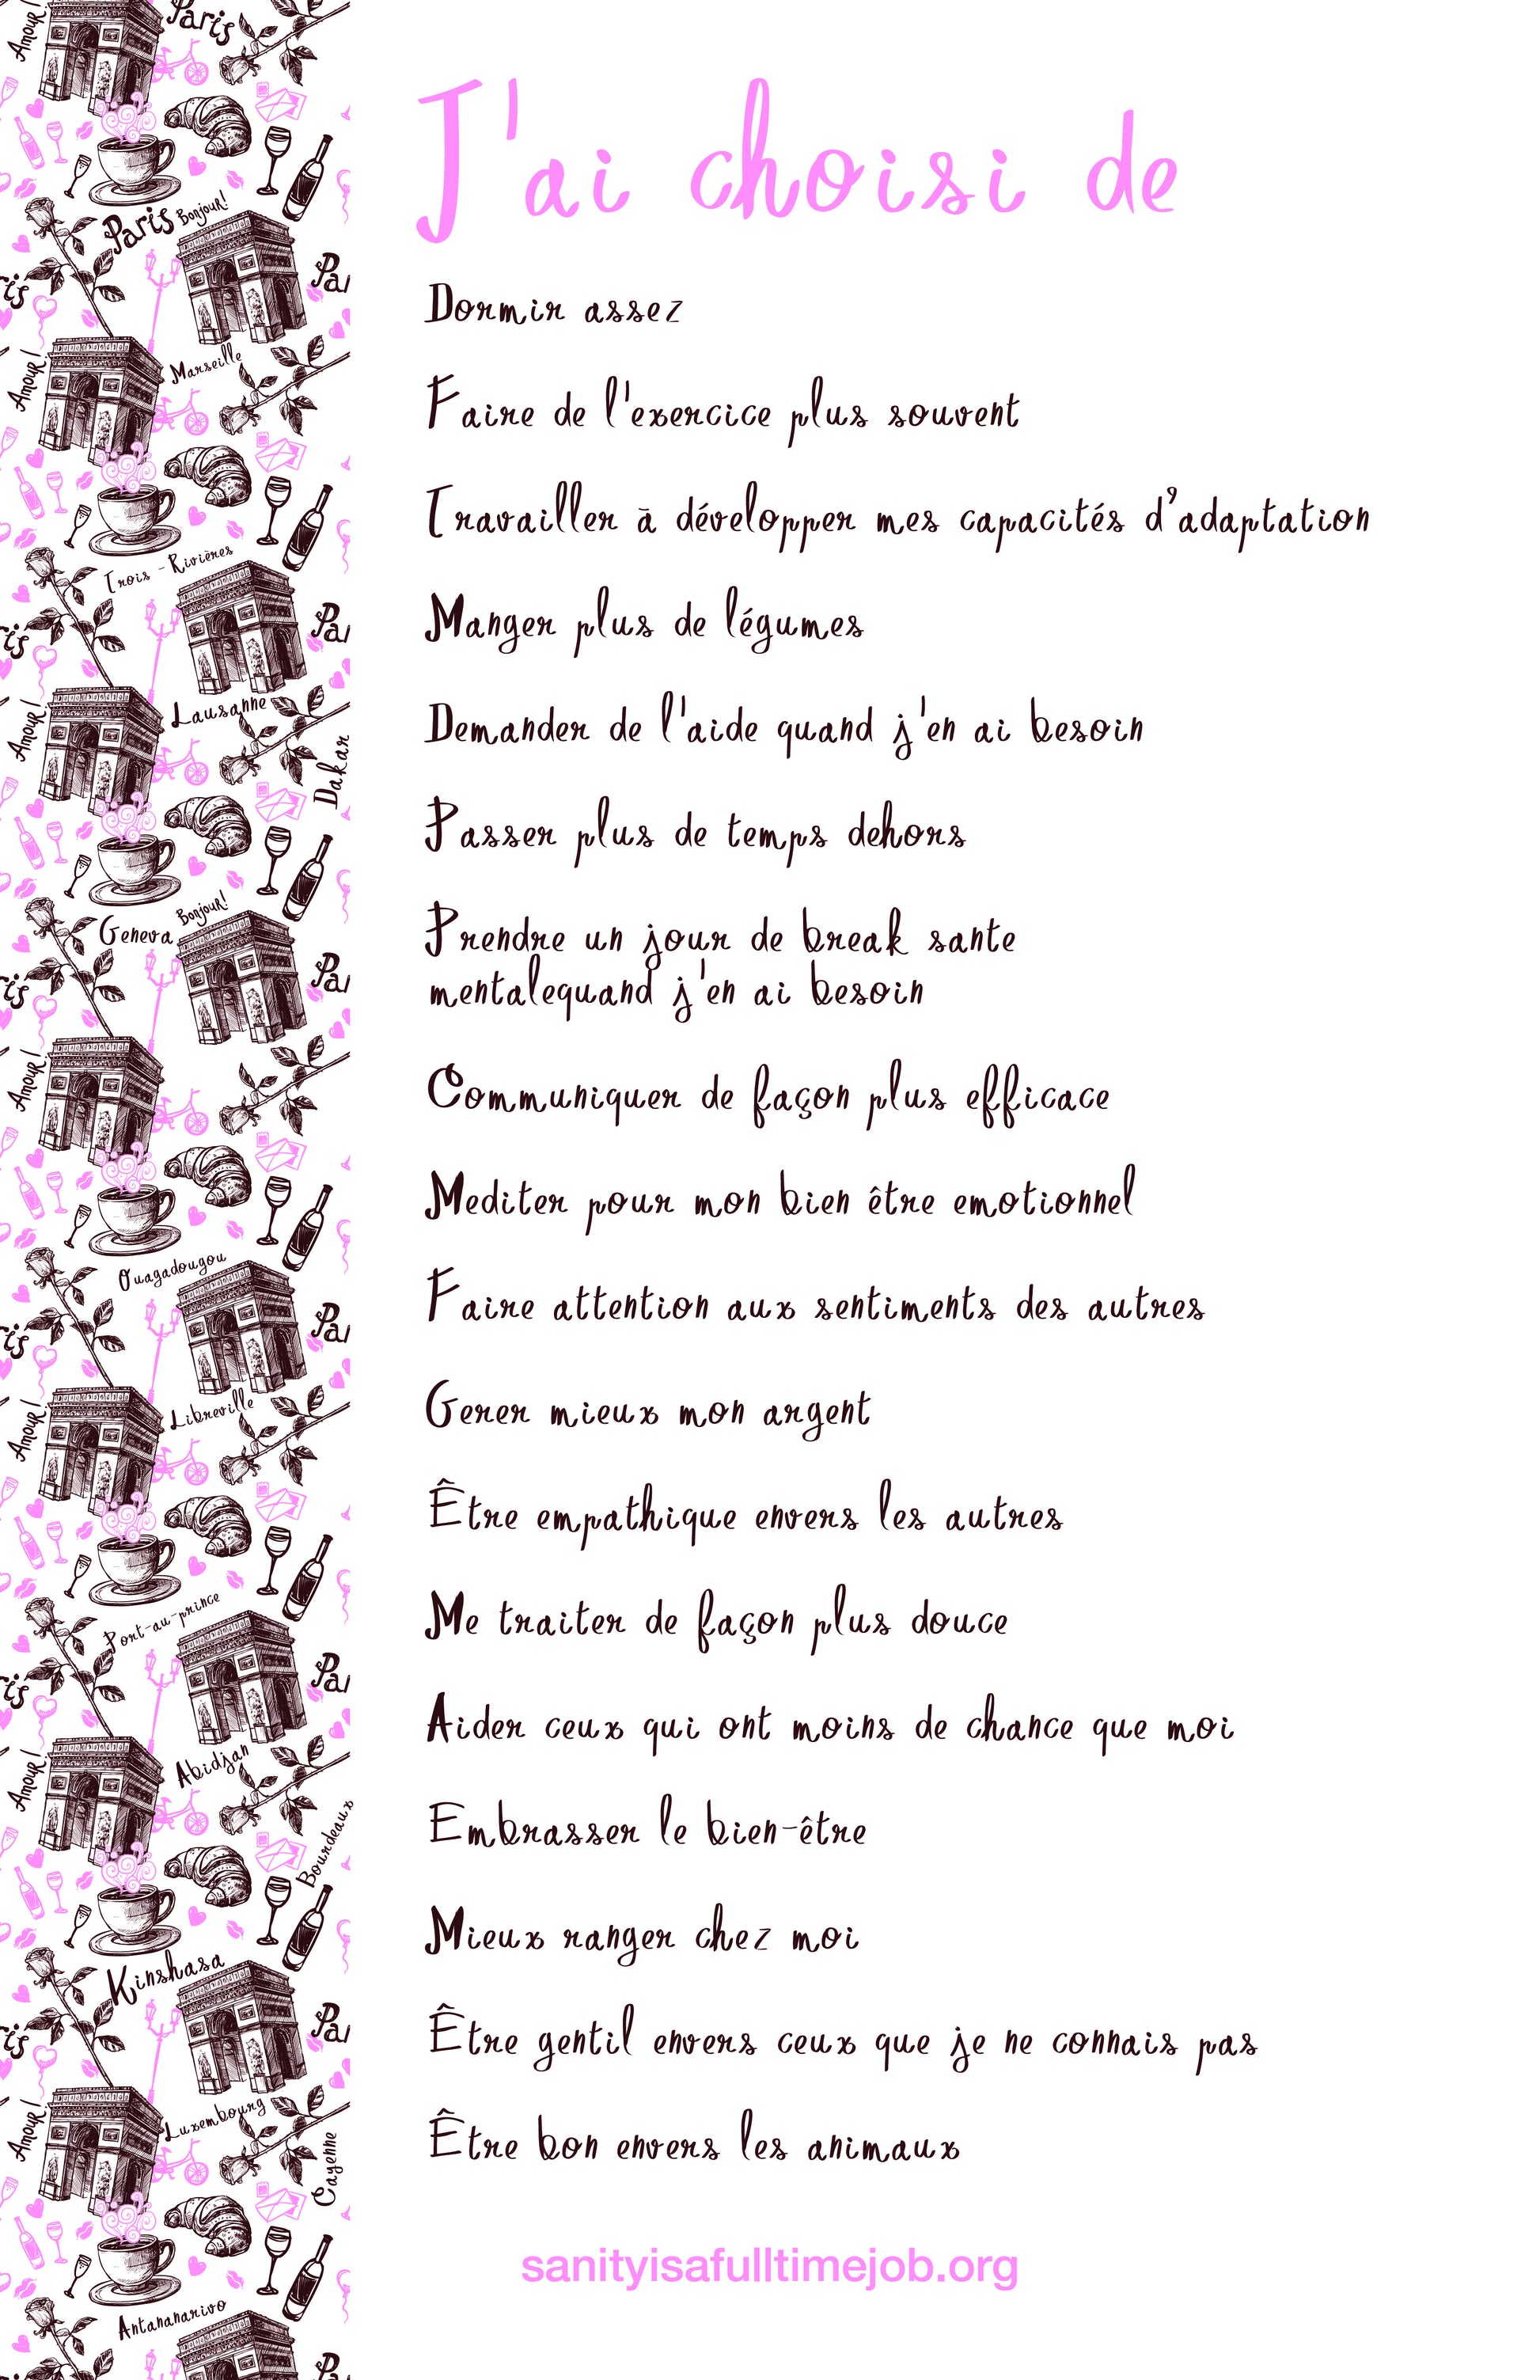 J'ai choisi de
Dormir assez
Faire de l'exercice plus souvent
Travailler à développer mes capacités d’adaptation
Manger plus de légumes
Demander de l'aide quand j'en ai besoin
Passer plus de temps dehors
Prendre un jour de break sante
mentalequand j'en ai besoin
Communiquer de façon plus efficace
Mediter pour mon bien être emotionnel
Faire attention aux sentiments des autres
Gerer mieux mon argent
Être empathique envers les autres
Me traiter de façon plus douce
Aider ceux qui ont moins de chance que moi
Embrasser le bien-être
Mieux ranger chez moi
Être gentil envers ceux que je ne connais pas
Être bon envers les animaux
sanityisafulltimejob.org
Paris
Amour!
Paris
Bonjour!
Marseille
Amour!
Trois - Rivières
Lausanne
Amour!
Dakar
Geneva
Bonjour!
Amour!
Ouagadougou
Libreville
Amour!
Port-au-prince
Abidjan
Amour!
Bourdeaux
Kinshasa
Luxembourg
Amour!
Cayenne
Antananarivo